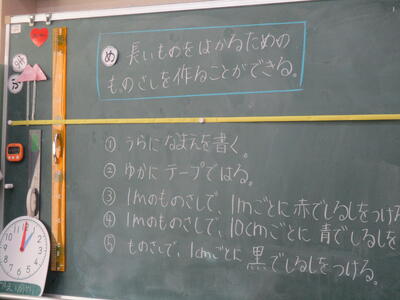 め
長いものをはかるための
ものさしを作ることができる。
① うらになまえを書く。
② ゆかにテープではる。
③ 1mのものさしで、1mごとに赤でしるしをつける
④ 1mのものさしで、10cmごとに青でしるしを
⑤ ものさしで、1cmごとに黒でしるしをつける。